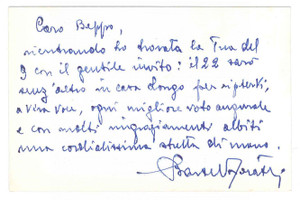 Caro Beppo,
rientrando ho trovata la Tua del
9 con il gentile invito: il 22 sarò
senz'altro in casa per ripterti,
a viva voce, ogni migliore voto augurale
e con molti ringraziamenti abbiti
una cordialissima stretta di mano.